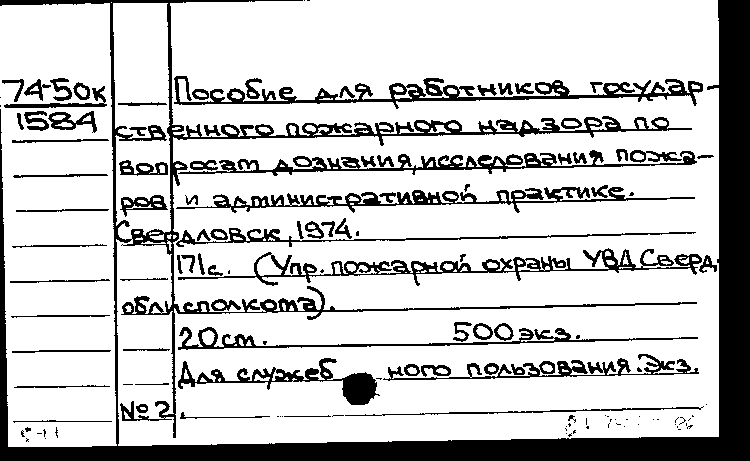 74-50к
1584
Пособие для работников государ-
ственного пожарного надзора по
вопросам дознания, исследования пожа-
ров и административной практике.
Свердловск, 1974.
171с. (Упр. пожарной охраны УВД Сверд.
облисполкома).
20 см. 500 экз.
Для служебного пользования. Экз.
№ 2.